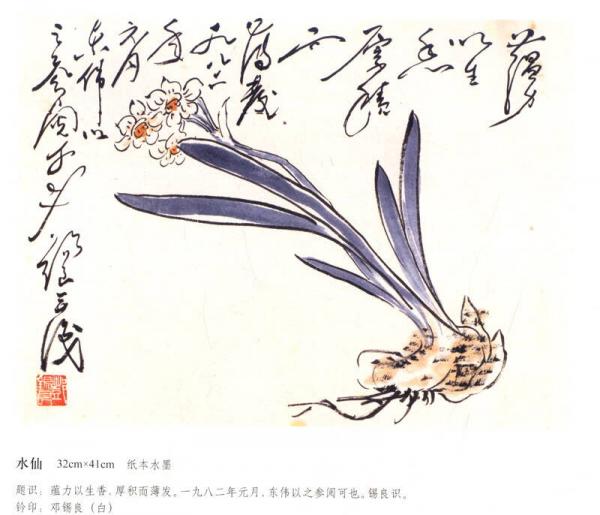 蕴力
以生
香
厚積
而
薄發
一九八二
年
元月
东伟以
之参阅可也 锡良识
水仙 32cm×41cm 纸本水墨
题识：蕴力以生香，厚积而薄发。一九八二年元月，东伟以之参阅可也。锡良识。
钤印：邓锡良（白）